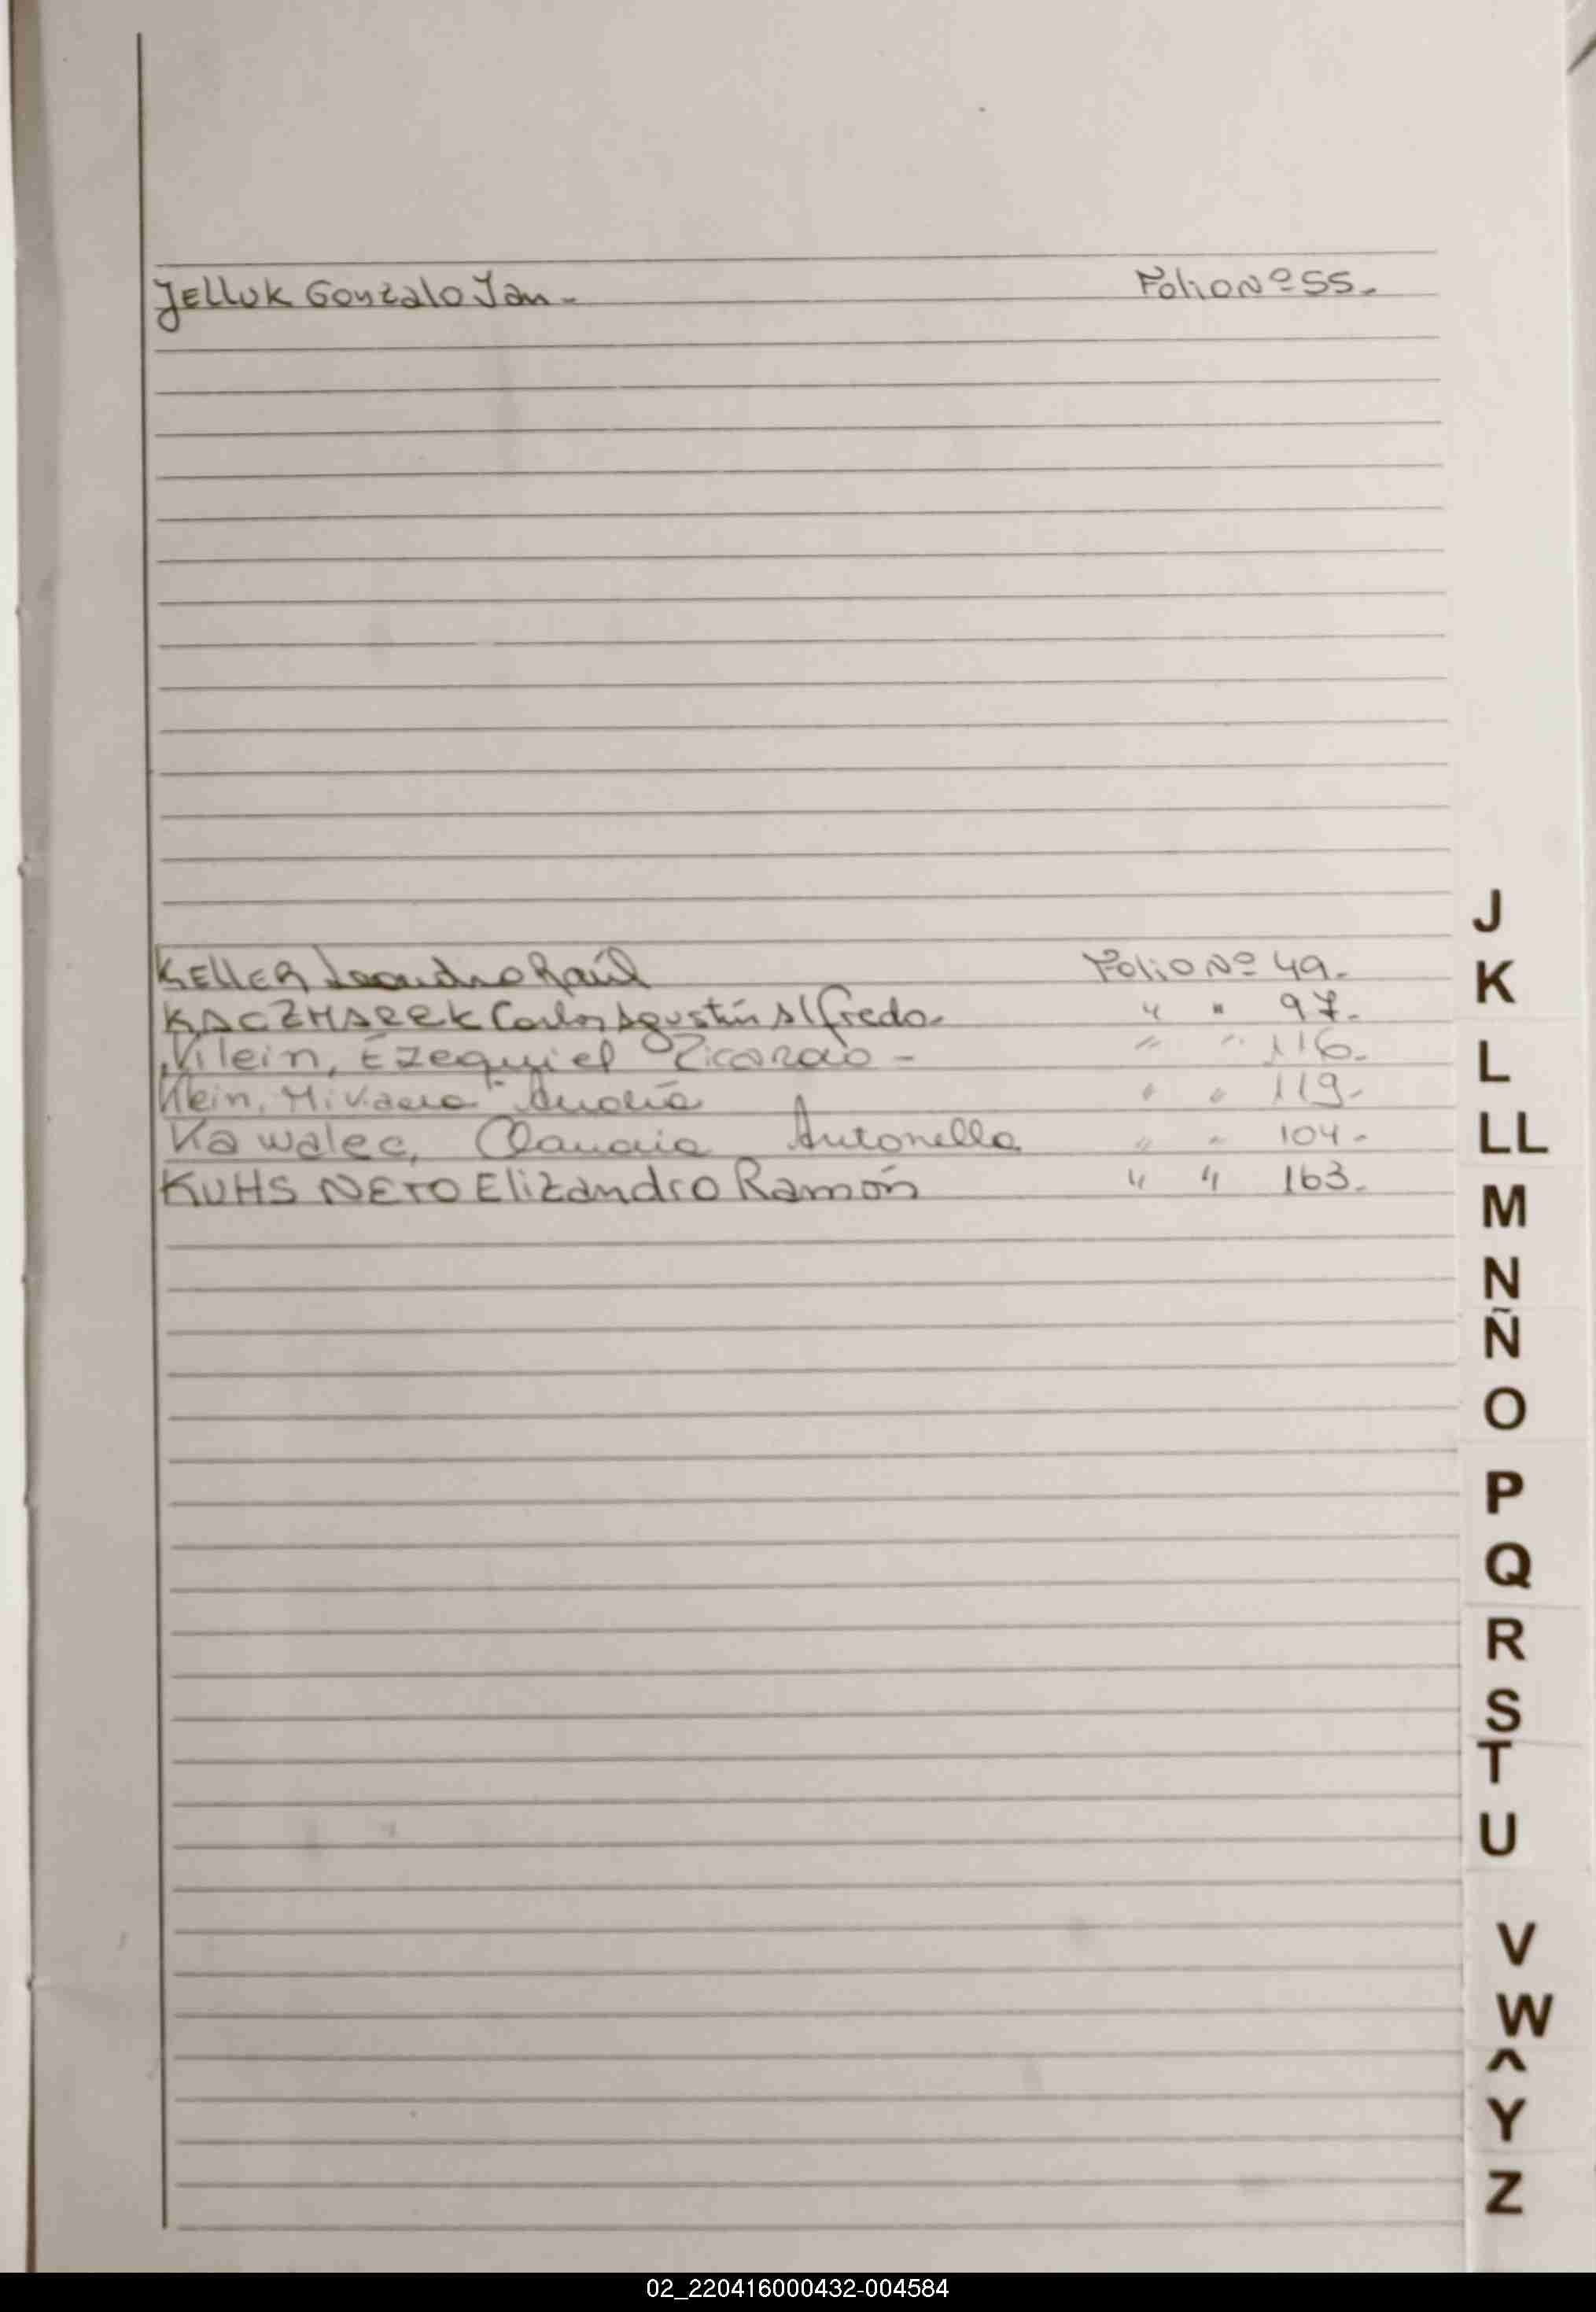 Jelluk Gonzalo Jan - Folio Nº 55.-
Keller Leandro Raúl Folio Nº 49.-
KACZMAREK Carlos Agustín Alfredo.- " " 97.-
Klein, Ezequiel Ricardo - " " 116.-
Klein, Analía " " 119.-
Kawalec, Claudia Antonella " " 104.-
KUHS NETO Elizandro Ramón " " 163.-
J
K
L
LL
M
N
Ñ
O
P
Q
R
S
T
U
V
W
Y
Z
02_220416000432-004584